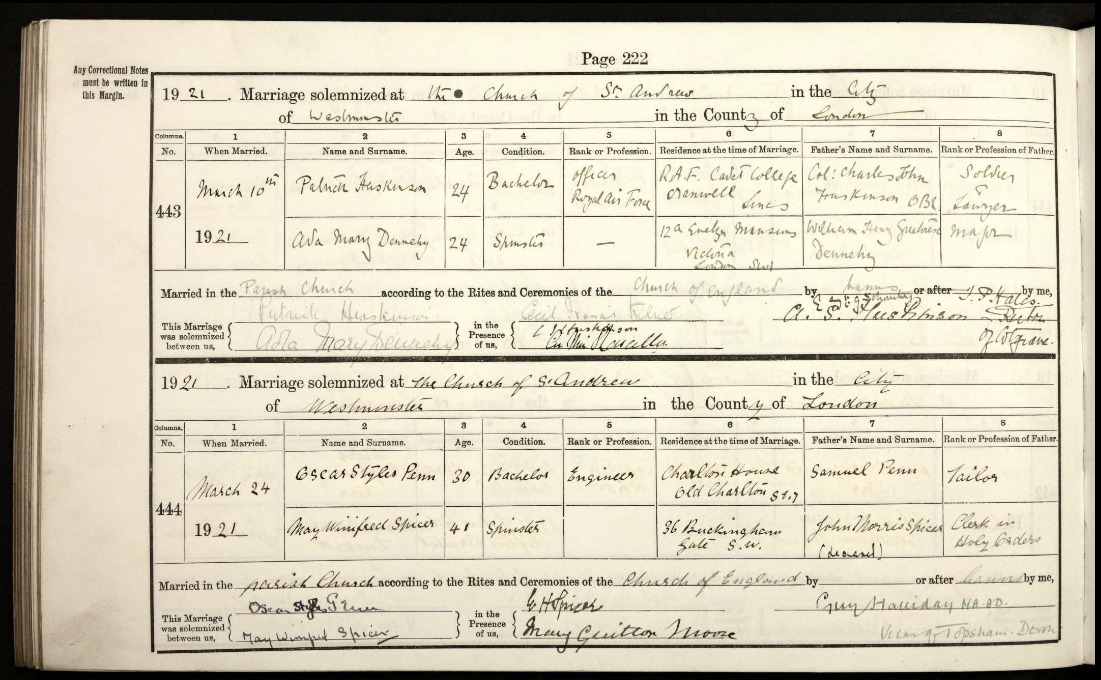 Page 222
Any Correctional Notes
must be written in
this Margin.
1921. Marriage solemnized at the Church of St. Andrew in the City
of Westminster in the County of London
Columns. 1 2 3 4 5 6 7 8
No. When Married. Name and Surname. Age. Condition. Rank or Profession. Residence at the time of Marriage. Father's Name and Surname. Rank or Profession of Father.
443 March 10th 1921
Patrick Huskinson 24 Bachelor Officer Royal Air Force R.A.F. Cadet College Cranwell Lincs Col: Charles John Huskinson OBE Soldier & Lawyer
Ada Mary Dennehy 24 Spinster — 12a Evelyn Mansions Victoria London SW1 William Henry Dennehy Major
Married in the Parish Church according to the Rites and Ceremonies of the Church of England by banns or after by me,
Patrick Huskinson
A. E. Huskinson
Rector
of
This Marriage was solemnized between us,
Ada Mary Dennehy
in the Presence of us,
Huskinson
1921. Marriage solemnized at the Church of St Andrew in the City
of Westminster in the County of London
Columns. 1 2 3 4 5 6 7 8
No. When Married. Name and Surname. Age. Condition. Rank or Profession. Residence at the time of Marriage. Father's Name and Surname. Rank or Profession of Father.
444 March 24 1921
Oscar Styles Penn 30 Bachelor Engineer Charlton House Old Charlton S.E.7 Samuel Penn Tailor
May Winifred Spicer 41 Spinster 36 Buckingham Gate S.W. John Morris Spicer (deceased) Clerk in Holy Orders
Married in the parish Church according to the Rites and Ceremonies of the Church of England by or after banns by me,
This Marriage was solemnized between us,
Oscar Styles Penn
May Winifred Spicer
in the Presence of us,
E H Spicer
Mary Moore
Guy Halliday M.A.
Vicar of Topsham - Devon